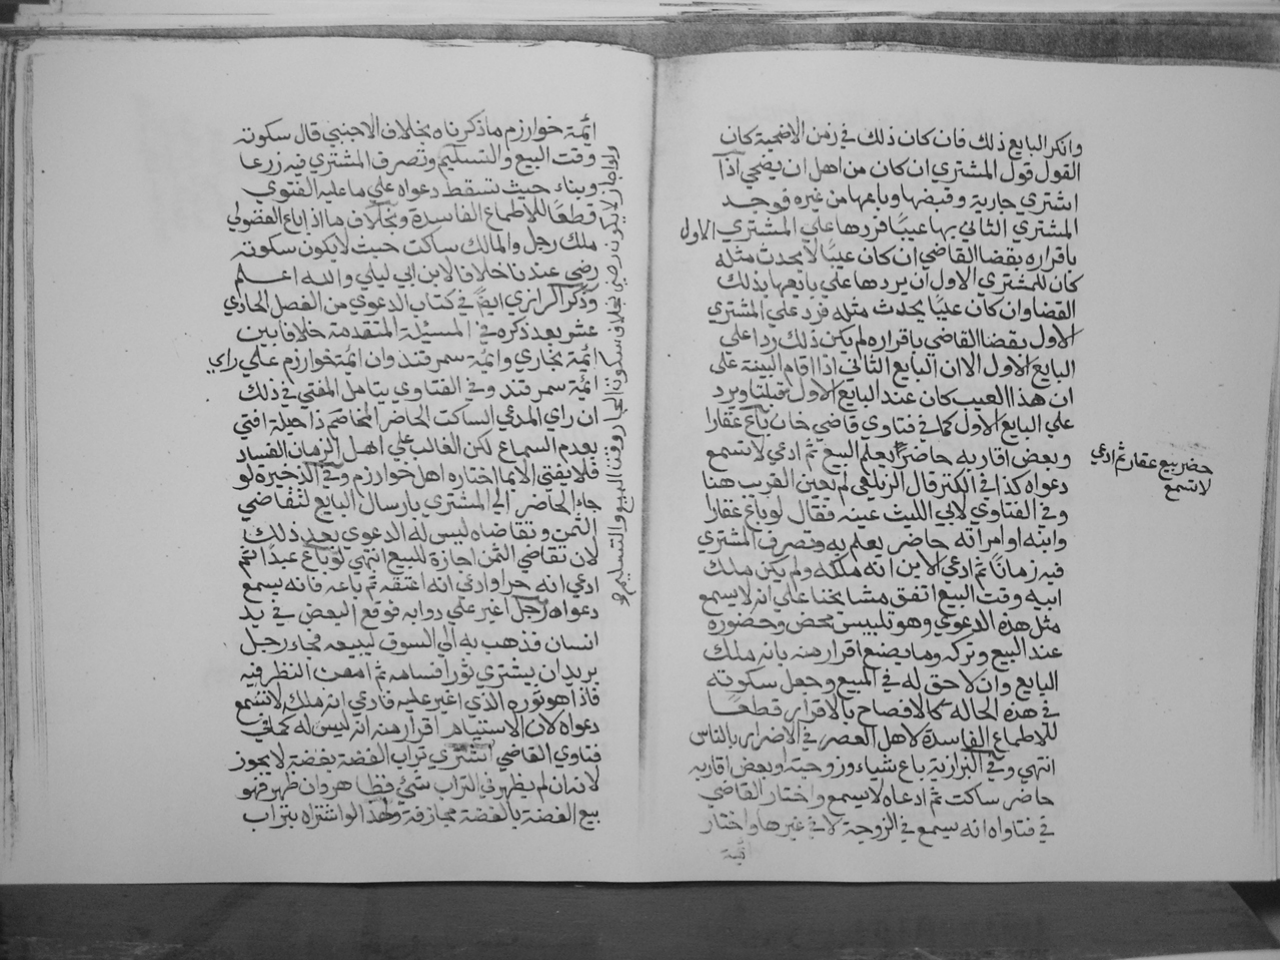 وانكر البايع ذلك فان كان ذلك في زمن الاضحية كان
القول قول المشتري ان كان من اهل ان يضحي اذا
اشتري جارية وقبضها وباعها من غيره فوجد
المشتري الثاني بها عيبًا فردها علي المشتري الاول
باقراره بقضا القاضي ان كان عيبًا لا يحدث مثله
كان للمشتري الاول ان يردها علي بايعها بذلك
القضا وان كان عيبًا يحدث مثله فرد علي المشتري
الاول بقضا القاضي باقراره لم يكن ذلك ردا علي
البايع الاول الا ان البايع الثاني اذا اقام البينة علي
ان هذا العيب كان عند البايع الاول قبلنا ويرد
علي البايع الاول كما في فتاوي قاضي خان باع عقارا
وبعض اقاربه حاضرًا يعلم البيع ثم ادعي لا تسمع
دعواه كذا في الكنز قال الزيلعي لم يعين القريب هنا
وفي الفتاوي لابي الليث عينه فقال لو باع عقارا
وابنه او امراته حاضر يعلم به وتصرف المشتري
فيه زمانًا ثم ادعي الابن انه ملكه ولم يكن ملك
ابيه وقت البيع اتفق مشايخنا علي انه لا يسمع
مثل هذه الدعوي وهو تلبيس محض وحضوره
عند البيع وتركه وما يصنع اقرار منه بانه ملك
البايع وان لا حق له في المبيع وجعل سكوته
في هذه الحالة كالافصاح بالاقرار قطعًا
للاطماع الفاسدة لاهل العصر في الاضرار بالناس
انتهي وفي البزازية باع شياء وزوجته او بعض اقاربه
حاضر ساكت ثم ادعاه لا يسمع واختار القاضي
في فتاواه انه يسمع في الزوجة لا في غيرها واختار
حضر بيع عقار ثم ادعي
لا تسمع
ائمة خوارزم ما ذكرناه بخلاف الاجنبي قال سكوته
وقت البيع والتسليم وتصرف المشتري فيه زرعا
وبناء حيث تسقط دعواه علي ما عليه الفتوي
قطعًا للاطماع الفاسدة وبخلاف ما اذا باع الفضولي
ملك رجل والمالك ساكت حيث لا يكون سكوته
رضي عندنا خلافا لابن ابي ليلي والله اعلم
وذكر الرازي ايضًا في كتاب الدعوي من الفصل الحادي
عشر بعد ذكره في المسئلة المتقدمة خلافا بين
ائمة بخاري وائمة سمرقند وان ائمة خوارزم علي راي
ائمة سمرقند وفي الفتاوي يتامل المفتي في ذلك
ان راي المدعي الساكت الحاضر المخاصم ذا حيلة افتي
بعدم السماع لكن الغالب علي اهل الزمان الفساد
فلا يفتي الا بما اختاره اهل خوارزم وفي الذخيرة لو
جاء الحاضر الي المشتري بارسال البايع لتقاضي
الثمن وتقاضاه ليس له الدعوي بعد ذلك
لان تقاضي الثمن اجازة للبيع انتهي لو باع عبدًا ثم
ادعي انه حر او ادعي انه اعتقه ثم باعه فانه يسمع
دعواه رجل اغير علي دوابه فوقع البعض في يد
انسان فذهب به الي السوق ليبيعه فجاء رجل
يريد ان يشتري ثورا فسامه ثم امعن النظر فيه
فاذا هو ثوره الذي اغير عليه فادعي انه ملك لا تسمع
دعواه لان الاستيام اقرار منه انه ليس له كما في
فتاوي القاضي اشتري تراب الفضة بفضة لا يجوز
لانه ان لم يظهر في التراب شئ فظاهر وان ظهر فهو
بيع الفضة بالفضة مجازفة ولهذا لو اشتراه بتراب